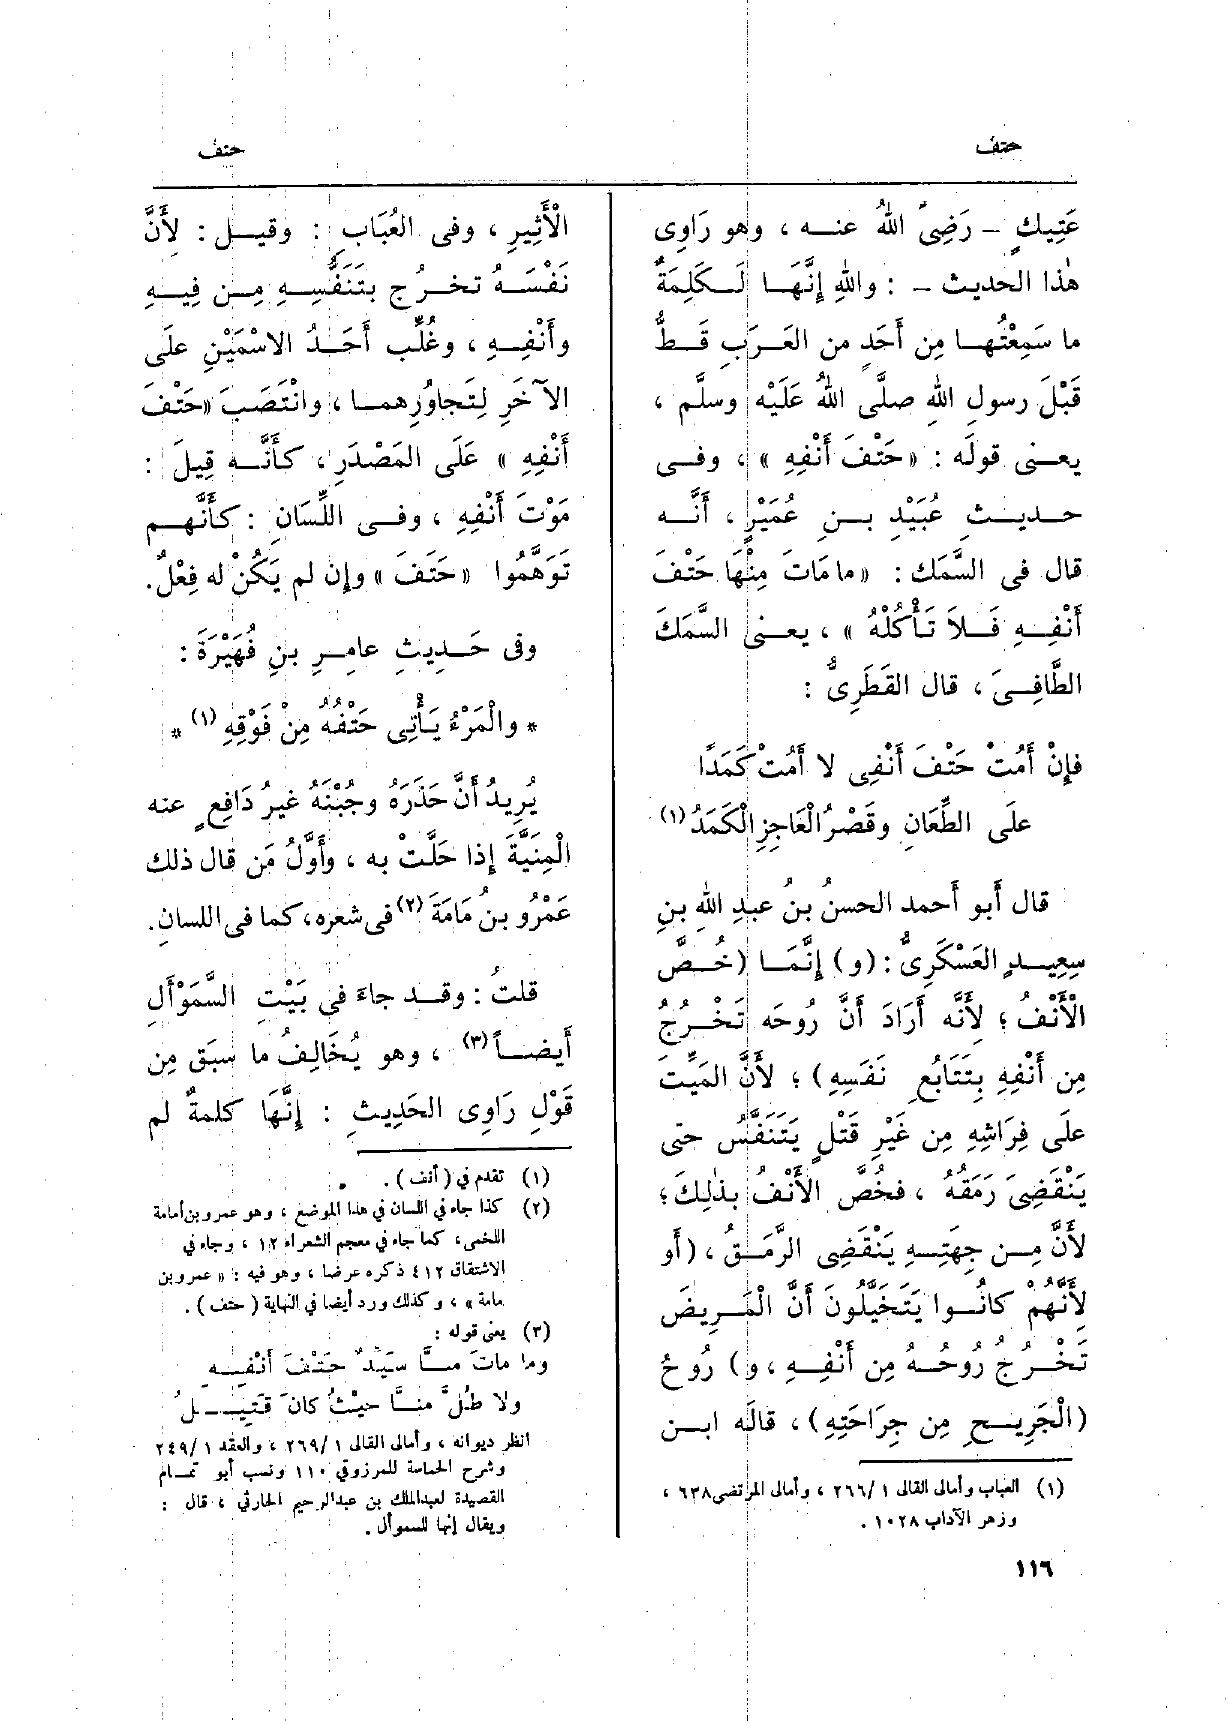 حتف
حتف
عَتِيكٍ – رَضِىَ اللهُ عنـه ، وهو رَاوِى
هٰذا الحديث – : واللهِ إِنَّهَـا لَـكَلِمَةٌ
ما سَمِعْتُهـا مِن أَحَدٍ من العَرَبِ قَـطُّ
قَبْلَ رسولِ اللهِ صلَّى اللهُ عَلَيْه وسلَّم ،
يعـنى قولَه : «حَتْفَ أَنْفِهِ » ، وفـى
حـديـثِ عُبَيْدِ بـنِ عُمَيْرٍ ، أَنَّـه
قال فى السَّمَك : «ما مَاتَ مِنْهَا حَتْفَ
أَنْفِـهِ فَـلَا تَـأْكُلْهُ » ، يعـنى السَّمَكَ
الطَّافِـىَ ، قال القَطَرِىُّ :
فإِنْ أَمُتْ حَتْفَ أَنْفِى لا أَمُتْ كَمَدًا
علَى الطِّعَانِ وقَصْرُ الْعَاجِزِ الْكَمَدُ (١)
قال أَبو أَحمد الحسنُ بنُ عبدِ اللهِ بنِ
سِعِيـدٍ العَسْكَرِىُّ : (و) إِنَّمَـا (خُـصَّ
الْأَنْفُ ؛ لأَنَّه أَرَادَ أَنَّ رُوحَه تَخْـرُجُ
مِن أَنْفِهِ بِتَتَابُعِ نَفَسِهِ) ؛ لأَنَّ المَيِّتَ
علَى فِرَاشِهِ مِن غَيْرِ قَتْلٍ يَتَنَفَّسُ حتى
يَنْقَضِىَ رَمَقُهُ ، فخُصَّ الأَنْفُ بذٰلِكَ ؛
لأَنَّ مِـن جِهَتِـهِ يَنْقَضِى الرَّمَقُ ، (أَو
لِأَنَّهُمْ كانُـوا يَتَخَيَّلُونَ أَنَّ الْمَرِيضَ
تَخْـرُجُ رُوحُـهُ مِن أَنْفِـهِ ، و) رُوحُ
(الْجَرِيـحِ مِن جِرَاحَتِهِ) ، قالَه ابـن
(١) العباب وأمالى القالى ١ /٢٦٦ ، وأمالى المرتضى ٦٣٨ ،
وزهر الآداب ١٠٢٨ .
الْأَثِيرِ ، وفى العُبَابِ : وقيـل : لأَنَّ
نَفْسَـهُ تخـرج بتَنَفُّسِهِ مِـن فِيـهِ
وأَنْفِـهِ ، وغُلِّب أَحَـدُ الاسْمَيْنِ علَى
الآخَرِ لِتَجاوُرِهمـا ، وانْتَصَبَ «حَتْفَ
أَنْفِهِ » عَلَى المَصْدَرِ ، كأَنَّـه قِيلَ :
مَوْتَ أَنْفِهِ ، وفـى اللِّسَانِ : كأَنَّهـم
تَوَهَّمُوا «حَتَفَ » وإن لم يَكُنْ له فِعْلٌ.
وفى حَـدِيثِ عامِـرِ بـنِ فُهَيْرَةَ :
* والْمَرْءُ يَـأْتِى حَتْفُهُ مِنْ فَوْقِهِ (١) *
يُرِيدُ أَنَّ حَذَرَهُ وجُبْنَهُ غيرُ دَافِعٍ عنه
الْمَنِيَّةَ إِذا حَلَّتْ به ، وأَوَّلُ مَن قال ذلك
عَمْرُو بنُ مَامَةَ (٢) فى شعرِه، كما فى اللسانِ.
قلتُ : وقـد جاءَ فى بَيْتِ السَّمَوْأَلِ
أَيضـاً (٣) ، وهو يُخَالِفُ ما سبَق مِن
قَوْلِ رَاوِى الحَدِيثِ : إِنَّهَا كلمةٌ لم
(١) تقدم في (أنف) .
(٢) كذا جاء في اللسان في هذا الموضع ، وهو عمرو بن أمامة
اللخمى، كما جاء في معجم الشعراء ١٢ ، وجاء في
الاشتقاق ٤١٢ ذكره عرضا ، وهو فيه : « عمرو بن
مامة » ، وكذلك ورد أيضا في النهاية (حتف) .
(٣) يعنى قوله :
وما ماتَ منـَّا سيِّدٌ حَتْفَ أَنْفِـهِ
ولا طُلَّ منـَّا حيثُ كانَ قَتِيـلُ
انظر ديوانه ، وأمالى القالى ١ /٢٦٩ ، والعقد ١ /٢٤٩
وشرح الحماسة للمرزوقي ١١٠ ونسب أبو تمـام
القصيدة لعبدالملك بن عبدالرحيم الحارثي ، قال :
ويقال إنها للسموأل .
١١٦